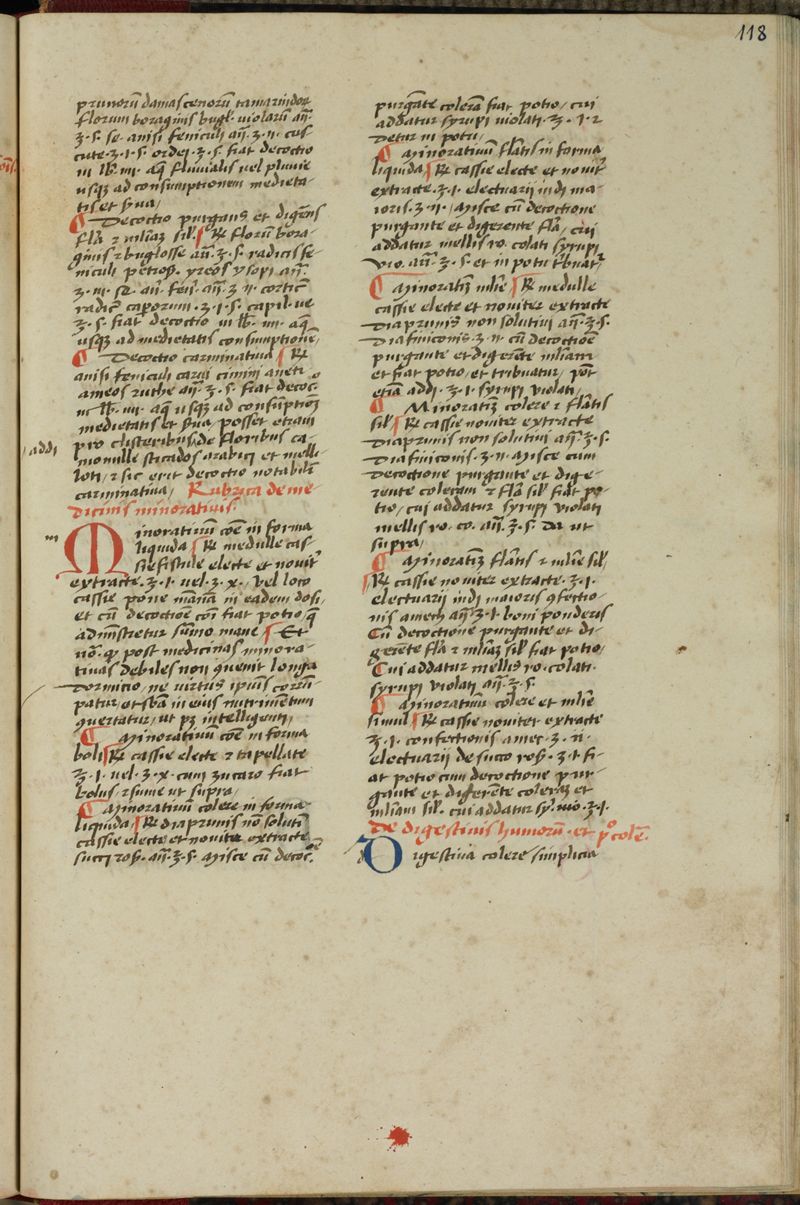 118
prunorū damascenorū tamarindoꝝ
florum boraginis bugl. violarū añ.
ʒ. s. se. anisi feniculi añ. ʒ. ij. cus
cute. ʒ. i. s. ordei. ʒ. s. fiat decoctio
in lb. iiij. aq̄ fluvialis vel pluvie
usqȝ ad consumptionem medieta-
tis et s̄va/
Decoctio purgans et digēns
flā ⁊ mlīaȝ sil. ℞ florū bora-
ginis ⁊ buglosse añ. ʒ. s. radicis fe-
niculi petros. yreos ysopi añ.
ʒ. iij. se. ani. feni. añ. ʒ ij. corticū
radic̄ caporum. ʒ. i. s. capil. ve
ʒ. s. fiat decoctio in lb. iiij. aq̄
usqȝ ad medietatis consumptionē/
Decoctio carminativa ℞
anisi feniculi carui cimini aneti
ameos ruthe añ. ʒ. s. fiat decoc̄o
in lb. iiij. aq̄ usqȝ ad consūptioȝ
medietatis et s̄va/ posset etiam
addi
pro clisteribus de floribus ca-
momille sticados arabici et melli-
loti/ ⁊ sic erit decoctio notabilr̄
carminativa/ Rubrica de me-
dicinis minorativis.
m
Minorativū cōe in forma
liquida ℞ medulle cas-
sie fistule electe et novitʳ
extracte. ʒ. i. vel. ʒ. x./ vel loco
cassie pone mānā in eadem dosi/
et cū decoctiōe cōi fiat potio/ q̄
administretur sūmo mane Et
nō. qͥ post medicinas minora-
tivas debiles non quenit longa
dormicio/ ne virtus ipius corrū-
patur/ et sb̄a in eius nutrimentum
quertatur/ ut pȝ intelligenti/
Minorativū cōe in forma
boli ℞ cassie electe ⁊ tapellate
ʒ. i. vel. ʒ. x. cum zucaro fiat
bolus/ ⁊ sume ut supra/
Minorativū colere in forma
liquida/ ℞ diaprunis nō soluti.
cassie electe et noviter extracte
succi ros. añ. ʒ. s. Misce cū decoc̄ōe
purgāte colerā fiat potio/ cui
addatur syrupi violati. ʒ. i. ⁊
detur in potu/
Minorativum flātis in forma
liquida ℞ cassie electe et novitʳ
extracte. ʒ. i. electuarij indi ma-
ioris. ʒ. ij./ Misce cū decoctione
purgante et digerente flā/ cui
addatur mellis ro. colati syrupi
vio. añ. ʒ. s. et in potu t̄buatʳ
Minoratiȝ mlīe ℞ medulle
cassie electe et noviter extracte
diaprunis non solutivi añ. ʒ. s.
diafiniconis. ʒ. ij. cū decoctiōe
purgante et digerēte mlīam
et fiat potio/ et tribuatur/ pōt
etiā addi. ʒ. i. syrupi violati/
Minoratiȝ colere ⁊ flātis
sil ℞ cassie noviter extracte
diaprunis non solutivi añ. ʒ. s.
diafiniconis. ʒ. ij. Misce cum
decoctione purgante et dige-
rente coleram ⁊ flā sil fiat po-
tio/ cui addatur syrupi violati
mellis ro. co. añ. ʒ. s. da ut
supra/
Minoratiȝ flātis ⁊ mlīe sil/
℞ cassie noviter extracte. ʒ. i.
electuarij indi maioris ꝯfectio-
nis amech añ. ʒ. i. boni ponderis
Cū decoctione purgante et di-
gerēte flā ⁊ mlīaȝ sil fiat potio/
Cui addatur mellis ro. colati.
syrupi violati añ. ʒ. s.
Minorativū colere et mlīe
simul ℞ cassie noviter extracte
ʒ. i. confectionis amec. ʒ. ij.
electuarij de succo ros. ʒ. i fi-
at potio cum decoctione pur-
gante et digerēte colerāȝ et
mlīam sil. cui addatur sy. vio. ʒ. i.
De digestivis humorū. et pͦ colē.
d
Digestiva colere simplicia